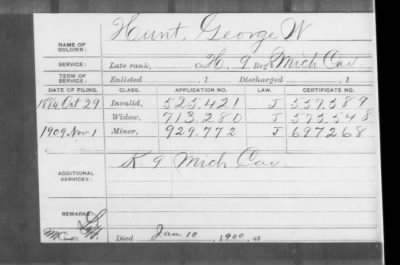 NAME OF SOLDIER: Hunt, George W
SERVICE: Late rank, Co. H, 9 Reg't Mich Cav
TERM OF SERVICE: Enlisted , 1 Discharged , 1
DATE OF FILING. CLASS. APPLICATION NO. LAW. CERTIFICATE NO.
1894 Oct 29 Invalid, 525.421 J 557.589
Widow, 713.280 J 575.548
1909 Nov 1 Minor, 929.772 J 697268
ADDITIONAL SERVICES: K 9 Mich Cav
REMARKS:
Died Jan 10, 1900, at